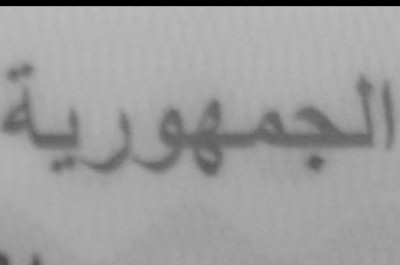 الجمهورية